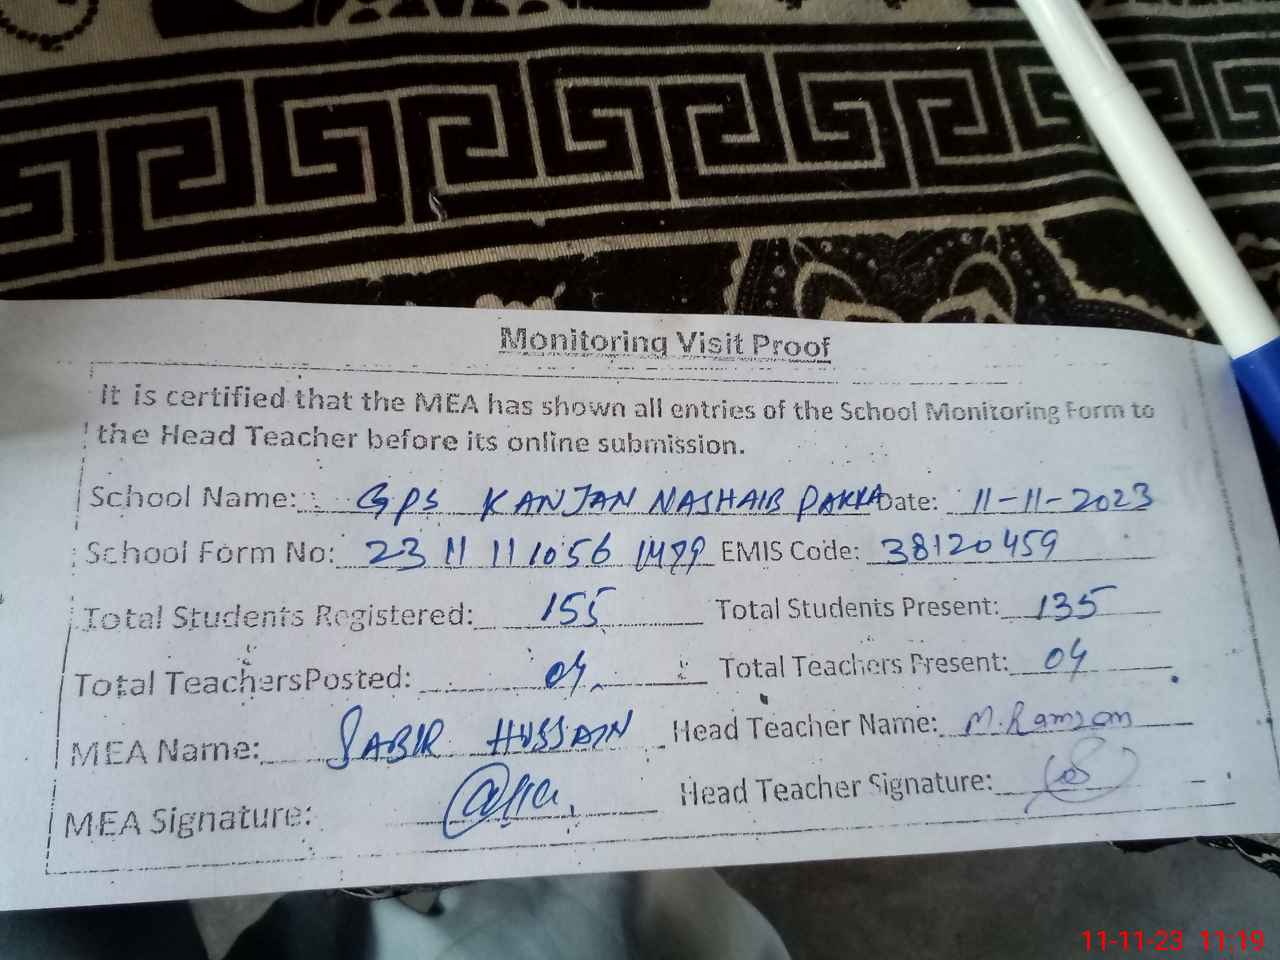 Monitoring Visit Proof
It is certified that the MEA has shown all entries of the School Monitoring Form to
the Head Teacher before its online submission.
School Name: GPS KANJAN NASHAIB PAKKA Date: 11-11-2023
School Form No: 23 11 11 1056 1479 EMIS Code: 38120459
Total Students Registered: 155 Total Students Present: 135
Total TeachersPosted: 04 Total Teachers Present: 04
MEA Name: SABIR HUSSAIN Head Teacher Name: M. Ramzan
MEA Signature: Head Teacher Signature:
11-11-23 11:19